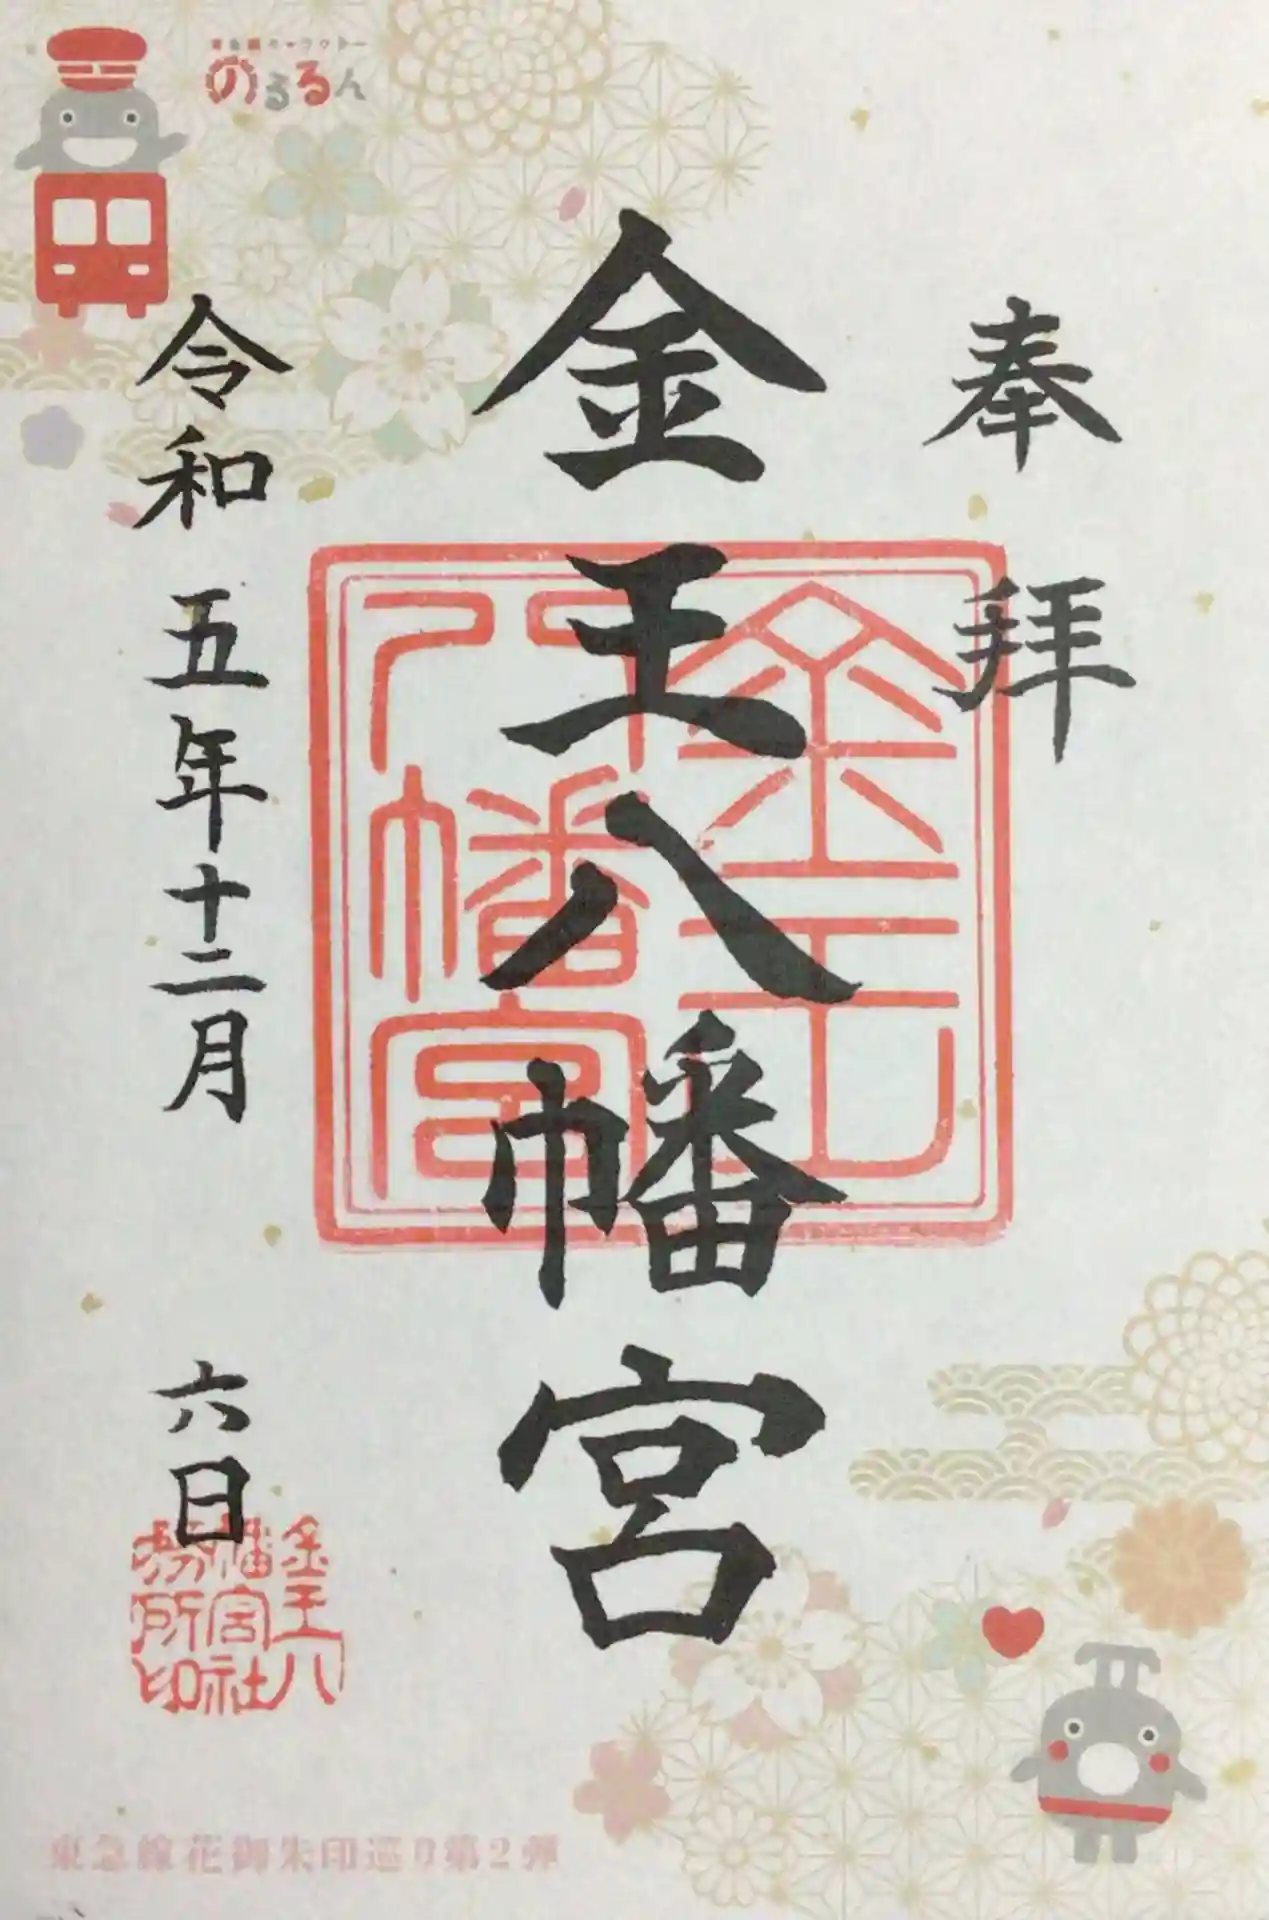 奉拝
金王八幡宮
令和五年十二月六日
金王八幡宮
金王八
幡宮社
務所印
東急線キャラクター
のるるん
東急線花御朱印巡り第2弾